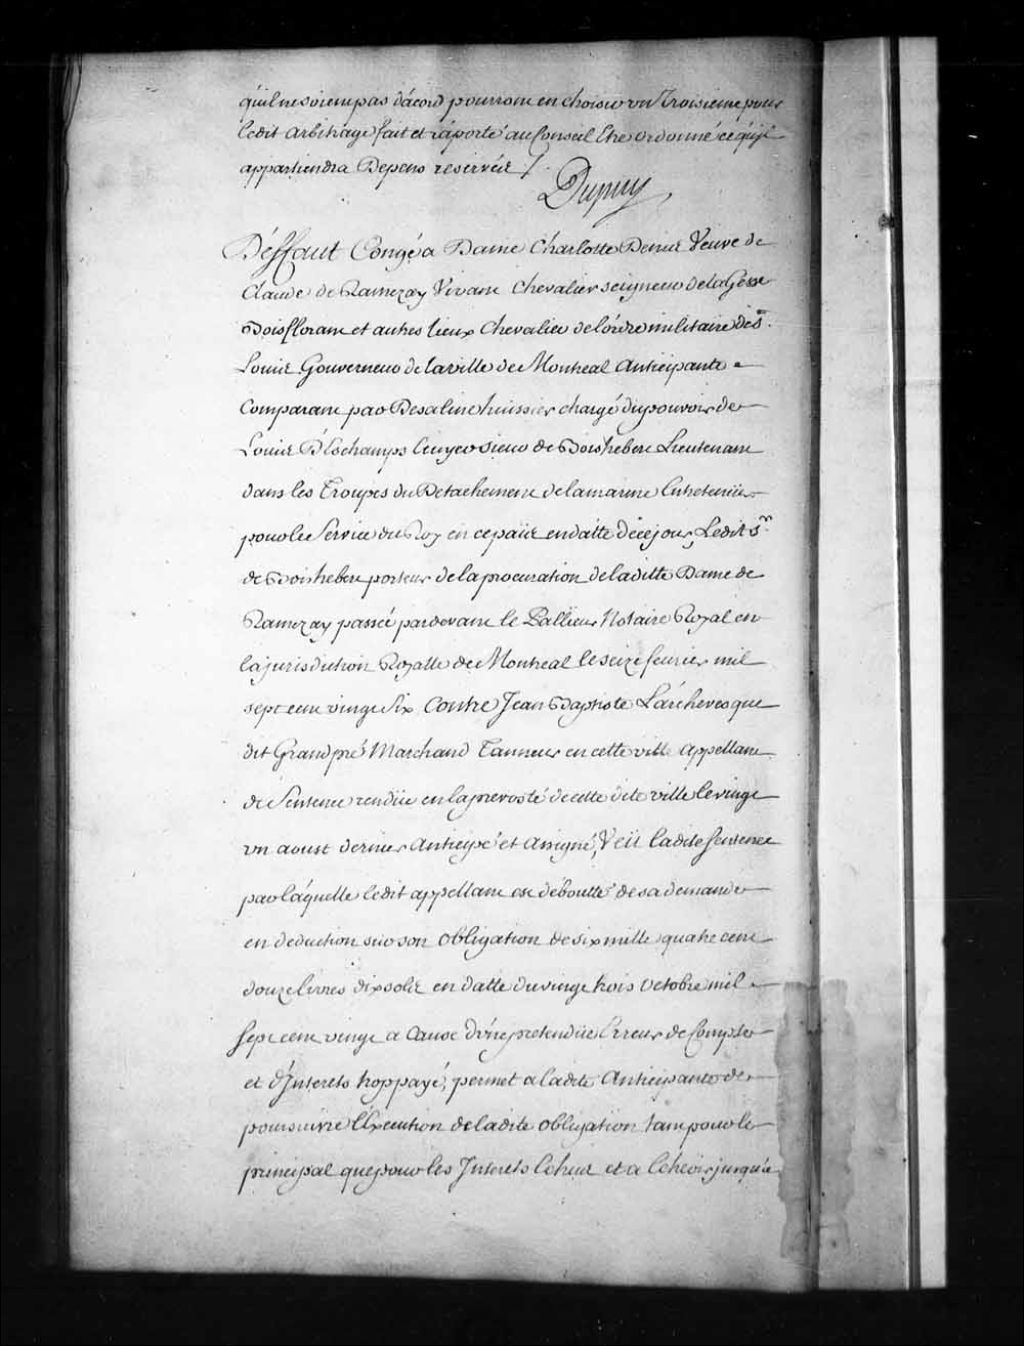 quil ne soient pas d'acord pourront en choisir un Troisieme pour
ledit arbitrage fait et raporté au Conseil Etre ordonné ce qu'il
appartiendra Depens reservéz /.
Dupuy
Déffaut Congé a Dame Charlotte Denis Veuve de
Claude de Ramezay Vivant Chevalier seigneur de la Gesse
Boisflorant et autres lieux Chevalier de l'ordre militaire de St.
Louis Gouverneur de la ville de Montreal Anticipante
Comparant par Desaline huissier chargé du pouvoir de
Louis D'Eschamps Ecuyer sieur de Boishebert Lieutenant
dans les Troupes du Detachement de la marine Entretenües
pour le Service du Roy en ce païs en datte de ce jour, Ledit Sr.
de Boishebert porteur de la procuration de laditte Dame de
Ramezay passée pardevant le Pallieur Notaire Royal en
la jurisdiction Royalle de Montreal le seize fevrier mil
sept cent vingt Six Contre Jean Baptiste L'archevesque
dit Grandpré Marchand Tanneur en cette ville Appellant
de Sentence rendüe en la prevosté de cette dite ville le vingt
un aoust dernier Anticipé et Assigné, Veü ladite Sentence
par láquelle ledit appellant est déboutté de sa demande
en deduction sur son obligation de six mille quatre cent
douze livres dix sols en datte du vingt trois octobre mil
Sept cent vingt a Cause d'une pretendüe Erreur de Compte
et d'Interests trop payé, permet a ladite Anticipante de
poursuivre l'Execution de ladite obligation tam pour le
principal que pour les Interests Echus et a Echeoir jusqu'a